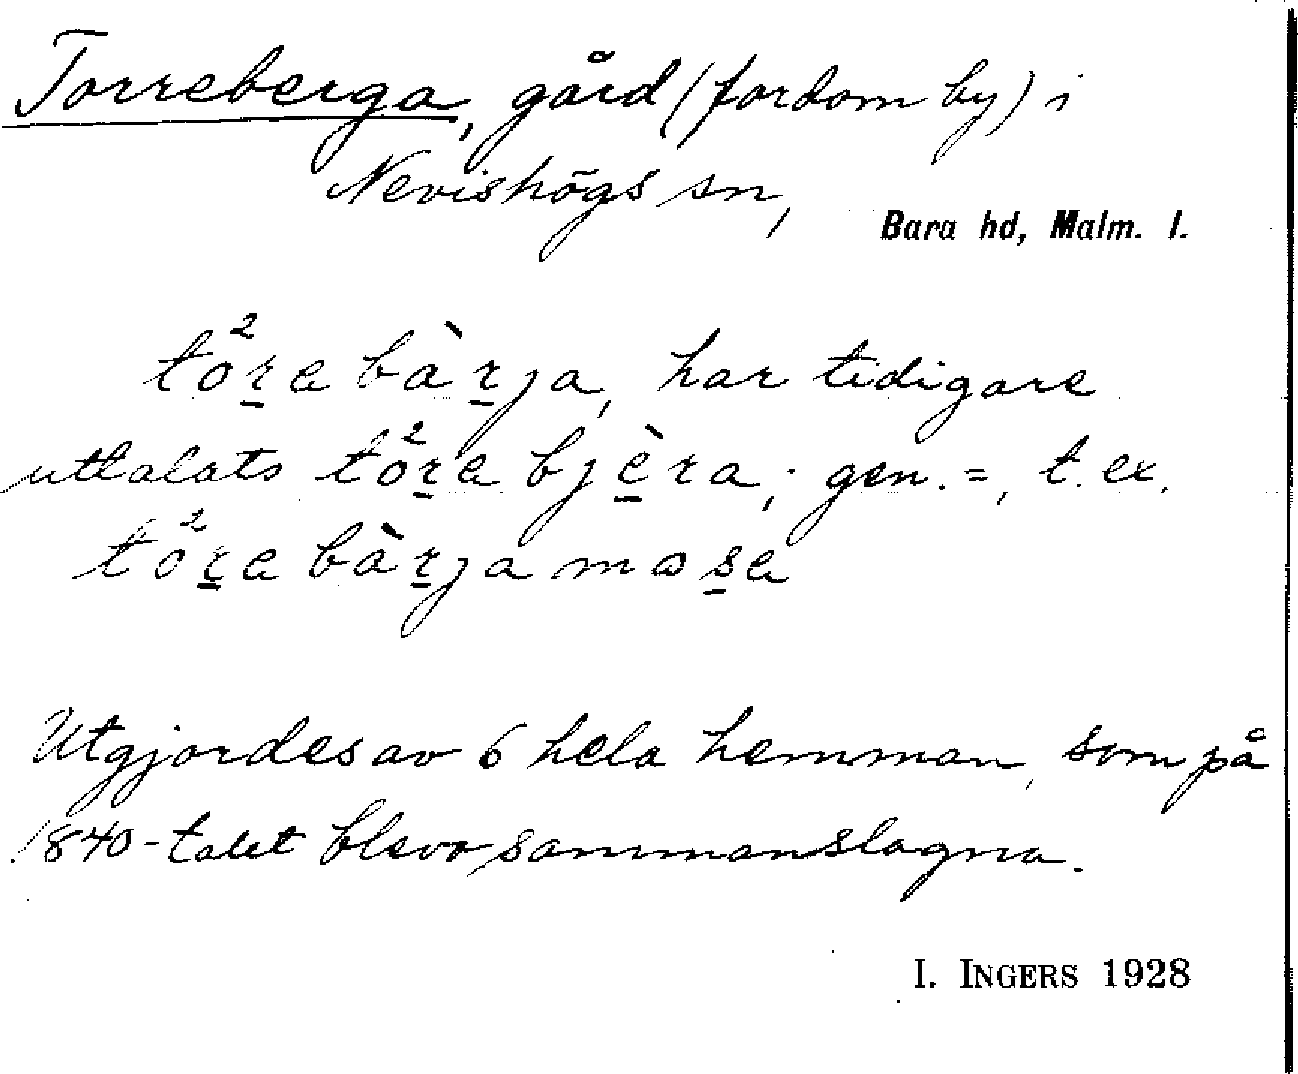 Torreberga, gård (fordom by) i
Nevishögs sn, Bara hd, Malm. l.
tö²r̠e bàr̠ja, har tidigare
uttalats tö²r̠e bjè̠ra; gen. =, t. ex.
tö²r̠e bàr̠ja mos̠e
Utgjordes av 6 hela hemman, som på
1840-talet blevo sammanslagna.
I. INGERS 1928